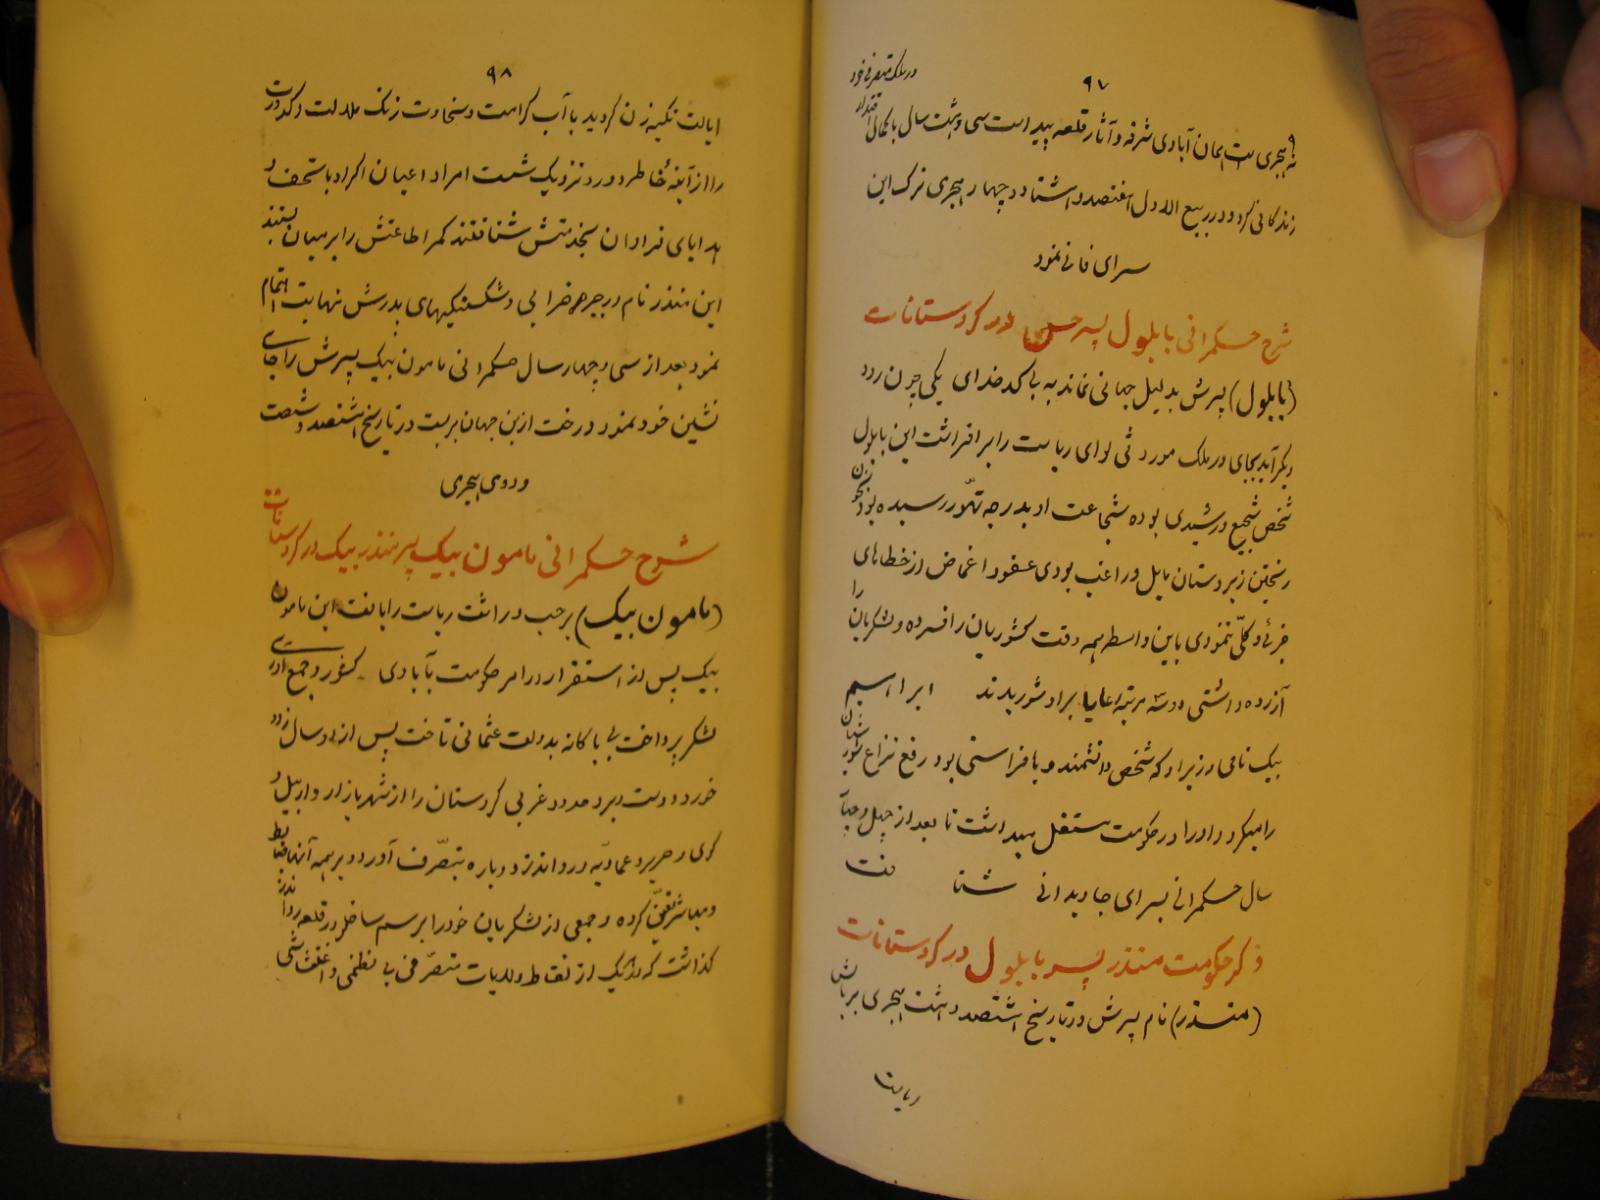 ۹۷
در ملک متصرفی خود
هجری است ایمان آبادی شرفه و آثار قلعه پیداست سی و هشت سال با کمال اقتدار
زندگانی کرد و در ربیع الاول هفتصد و هشتاد و چهار هجری ترک این
سرای فانی نمود
شرح حکمرانی بابلول پسر حسن در کردستانات
(بابلول) پسرش بدلیل جهانی نماند به بی کدخدای یکی چون رود
دیگر آید بجای در ملک موروثی لوای ریاست را برافراشت این بابلول
شخص شجیع و رشیدی بوده شجاعت او بدرجه تهوّر رسیده بود بخون
ریختن زیردستان مایل و راغب بودی عفو و اغماض از خطاهای
جزئی و کلّی ننمودی باین واسطه همه وقت کشوریان را افسرده و لشکریان را
آزرده داشتی دو سه مرتبه رعایا بر او شوریدند ابراهیم
بیک نامی وزیر او که شخص دانشمند و با فراستی بود رفع نزاع شورششان
را میکرد و او را در حکومت مستقل میداشت تا بعد از چهل و پنج
سال حکمرانی بسرای جاویدانی شتافت
ذکر حکومت منذر پسر بابلول در کردستانات
(منذر) نام پسرش در تاریخ هشتصد و هشت هجری بر بالش
ریالت
۹۸
ایالت تکیه زن گردید با آب کرامت و سخاوت زنک ملالت و کدورت
را از آینهٔ خاطر دور و نزدیک شست امراء و اعیان اکراد با تحف و
هدایای فراوان بخدمتش شتافتند کمر اطاعتش را بر میان بستند
این منذر نام در جبر خرابی و شکستگیهای پدرش نهایت اهتمام
نمود بعد از سی و چهار سال حکمرانی مامون بیک پسرش را جای
نشین خود نمود و رخت ازین جهان بربست در تاریخ هشتصد و شصت
و دوی هجری
شرح حکمرانی مامون بیک پسر منذر بیک در کردستانات
(مامون بیک) بر حسب وراثت ریاست را یافت این مامون
بیک پس از استقرار در امر حکومت بآبادی کشور و جمع آوری
لشکر پرداخت بی باکانه بدولت عثمانی تاخت پس از دو سال زد و
خورد و دست برد حدود غربی کردستان را از شهر بازار و اربیل و
کوی و حریر و عمادیه و رواندز دوباره بتصرّف آورد و بر همه آنها ضابط
و مباشر تعیین کرده و جمعی از لشکریان خود را برسم ساخلو در قلعه رواندز
گذاشت که هر یک از نقاط ولایات متصرّفی بی نظمی و اغتشاشی